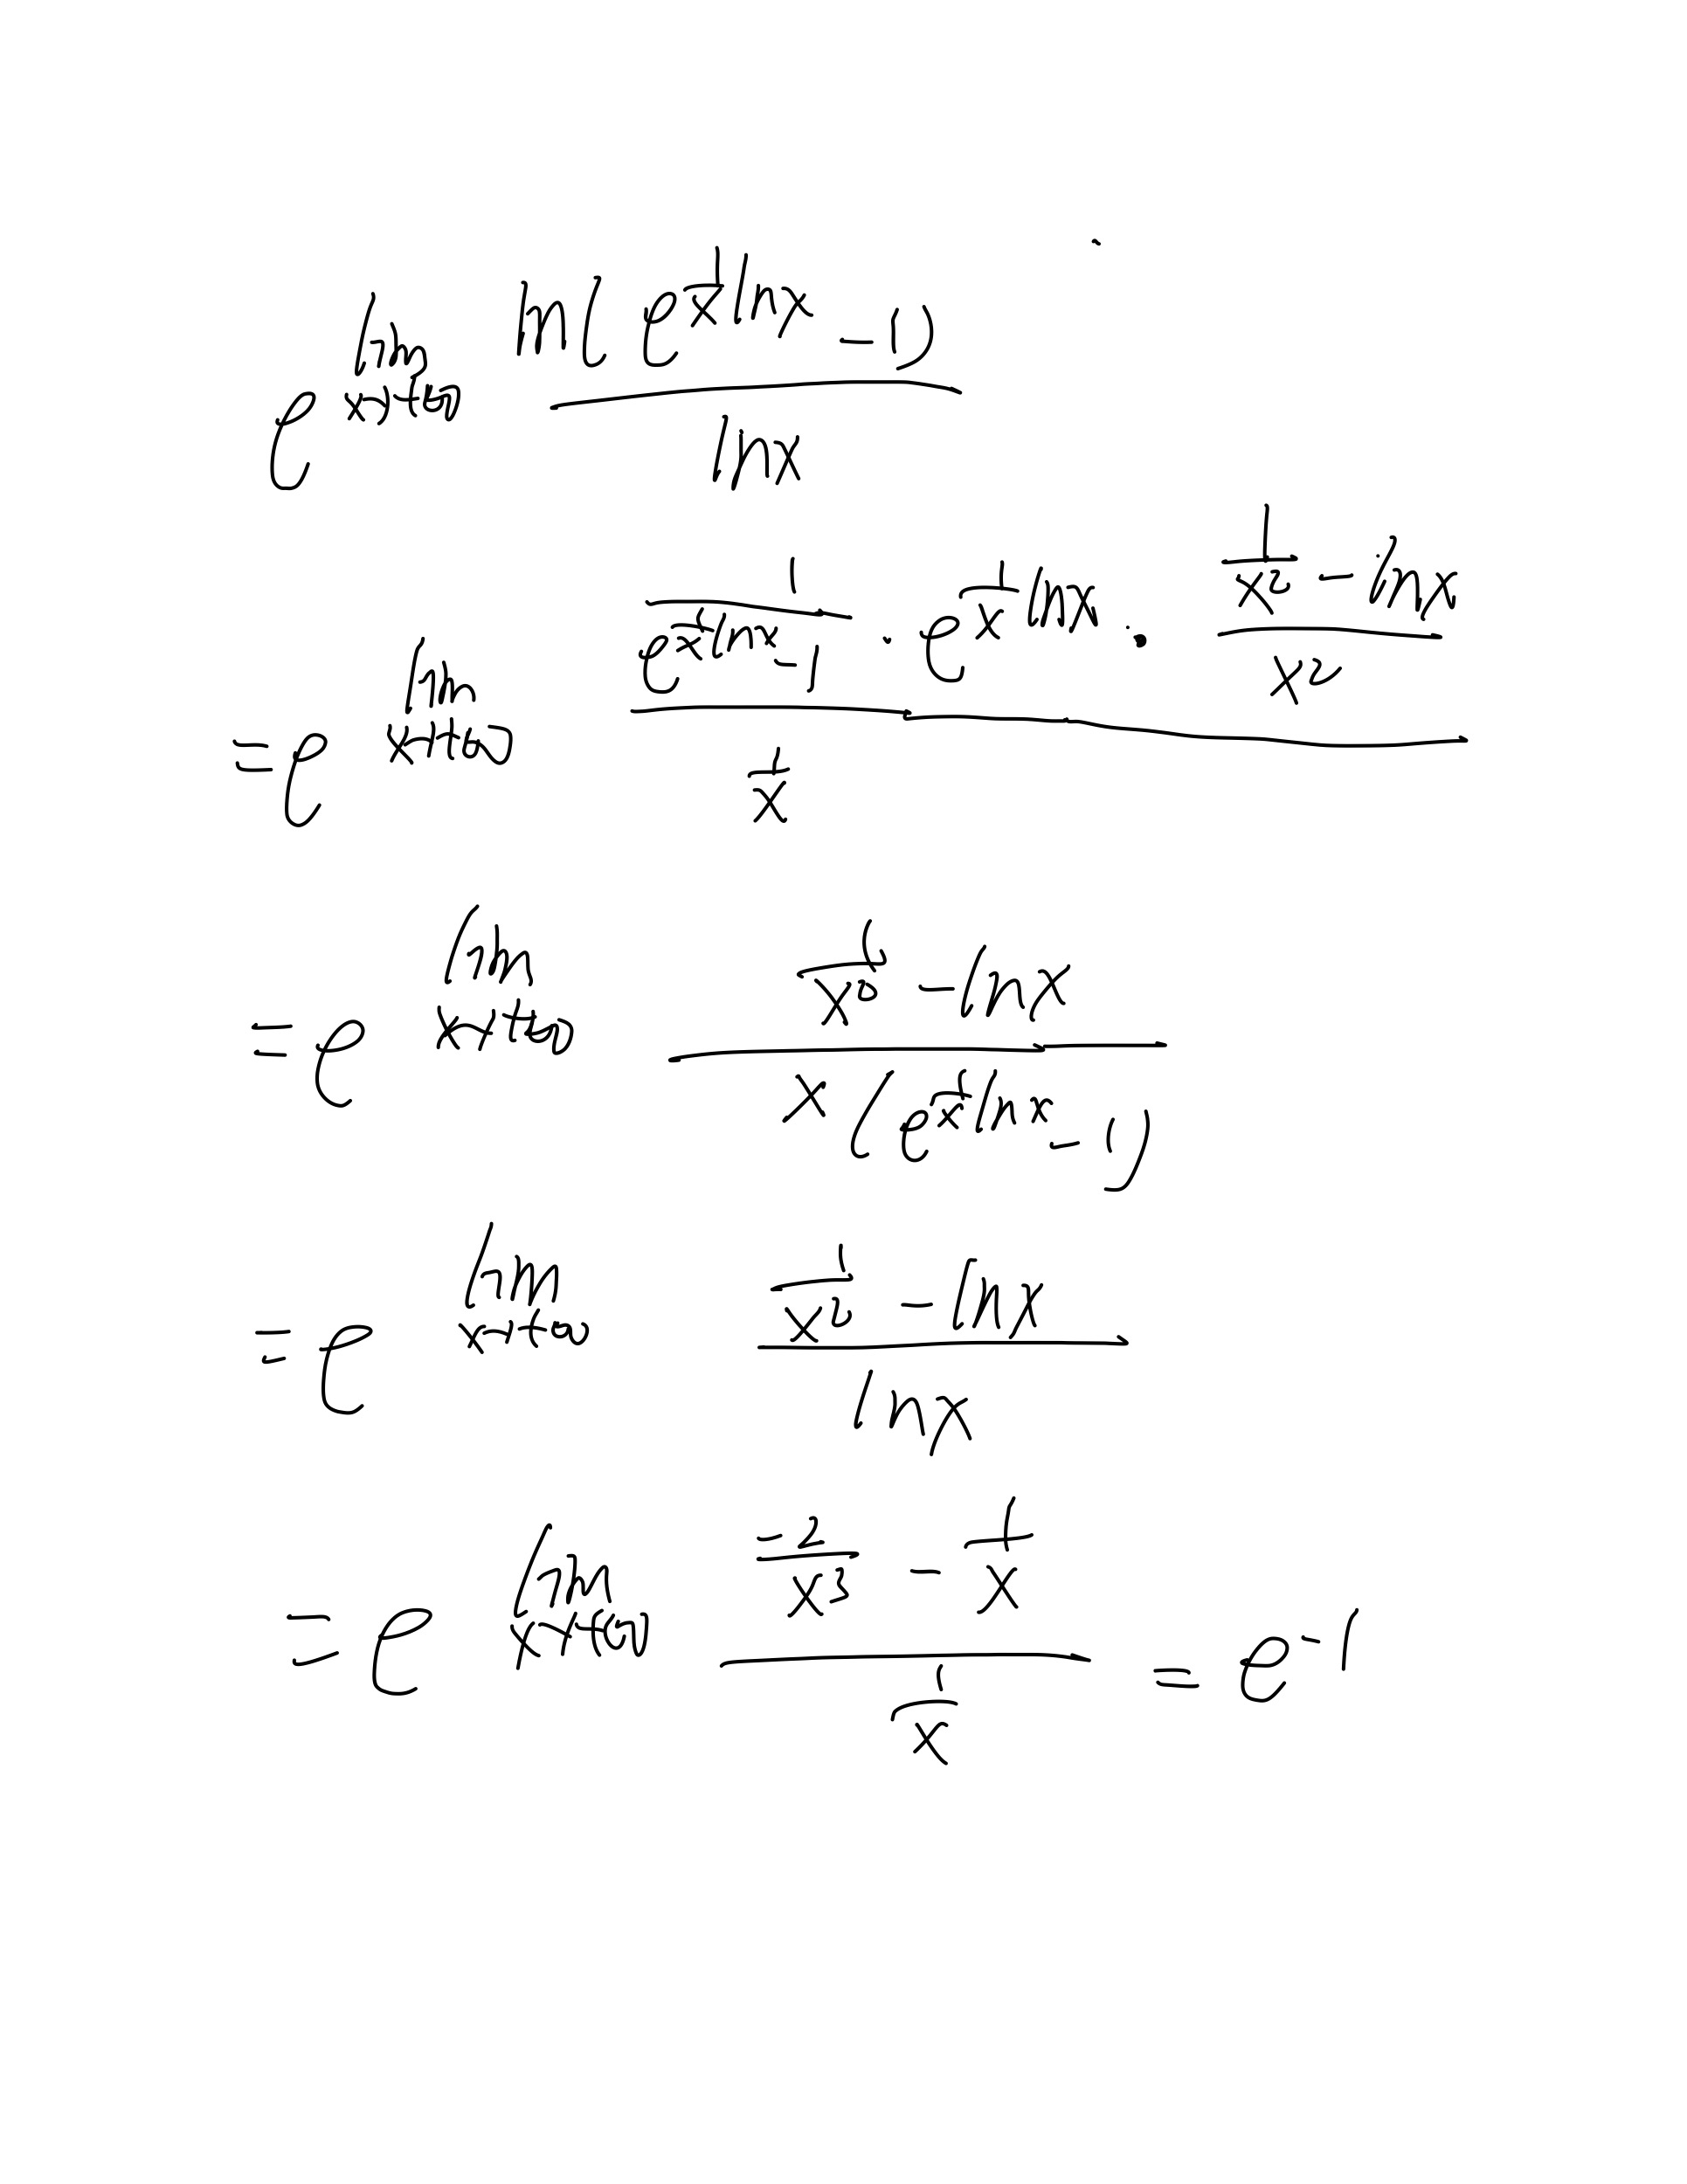 e^{\lim_{x→+∞} \frac{\ln(e^{\frac{1}{x}\ln x} - 1)}{\ln x}}
= e^{\lim_{x→+∞} \frac{\frac{1}{e^{\frac{1}{x}\ln x} - 1} · e^{\frac{1}{x}\ln x} · \frac{\frac{1}{x^2} - \ln x}{x^2}}{\frac{1}{x}}}
= e^{\lim_{x→+∞} \frac{\frac{1}{x^2} - \ln x}{x(e^{\frac{1}{x}\ln x} - 1)}}
= e^{\lim_{x→+∞} \frac{\frac{1}{x^2} - \ln x}{\ln x}}
= e^{\lim_{x→+∞} \frac{\frac{-2}{x^3} - \frac{1}{x}}{\frac{1}{x}}} = e^{-1}